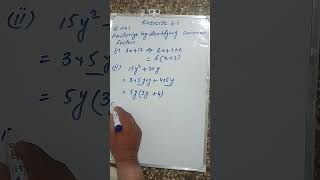 Exercise 6.1
Q No 1
Factorize by identifying Common
Factors
(i) 6x+12 ⇒ 6x+2×6
= 6(x+2)
(ii) 15y²+20y
= 3×5y×y + 4×5y
= 5y(3y+4)